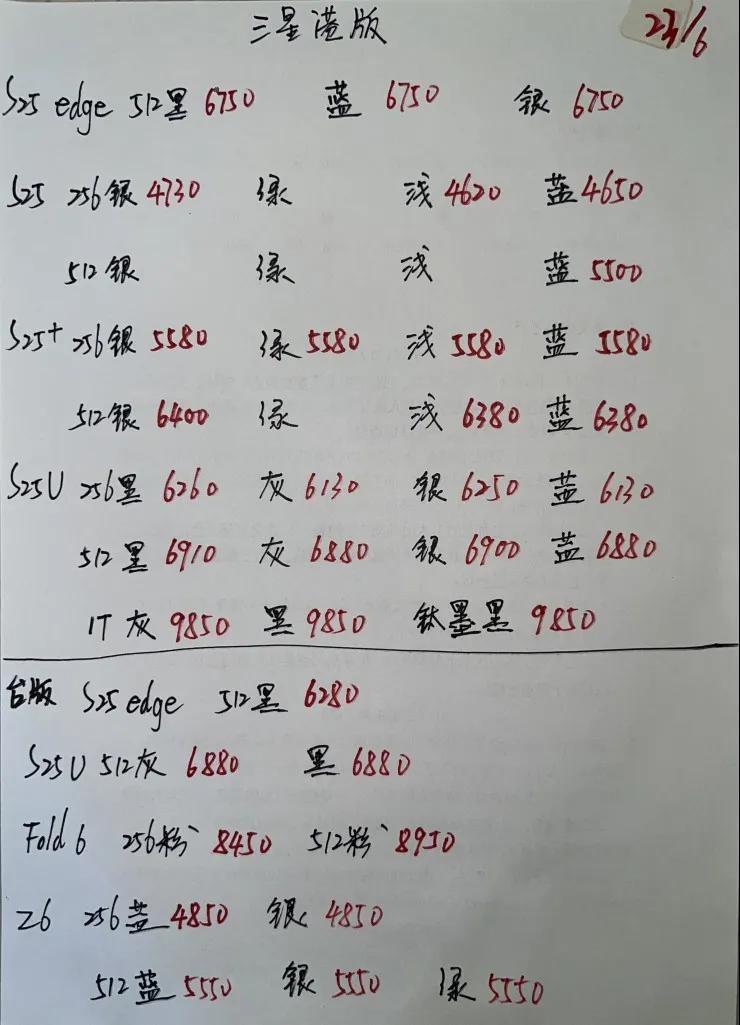 三星港版 23/6
S25 edge 512黑 6750 蓝 6750 银 6750
S25 256银 4730 绿 浅 4620 蓝 4650
512银 绿 浅 蓝 5500
S25+ 256银 5580 绿 5580 浅 5580 蓝 5580
512银 6400 绿 浅 6380 蓝 6380
S25U 256黑 6260 灰 6130 银 6250 蓝 6130
512黑 6910 灰 6880 银 6900 蓝 6880
1T 灰 9850 黑 9850 钛墨黑 9850
台版 S25 edge 512黑 6280
S25U 512灰 6880 黑 6880
Fold 6 256粉 8450 512粉 8950
Z6 256蓝 4850 银 4850
512蓝 5550 银 5550 绿 5550